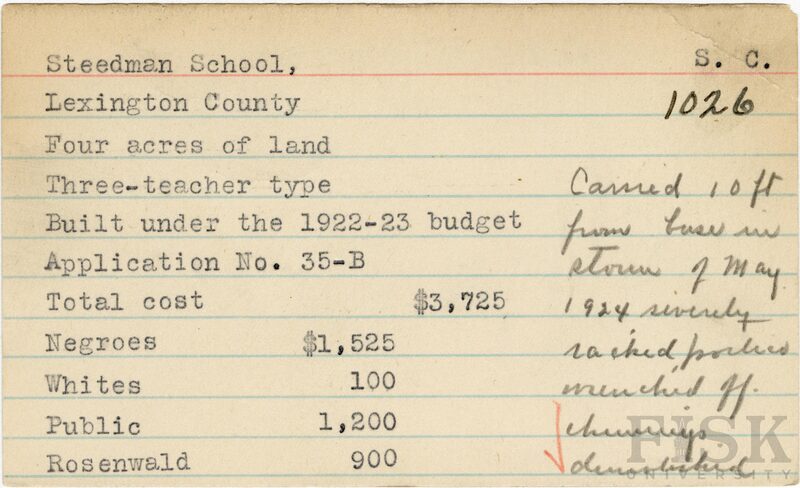 Steedman School, S. C.
Lexington County 1026
Four acres of land
Three-teacher type
Built under the 1922-23 budget
Application No. 35-B
Total cost $3,725
Negroes $1,525
Whites 100
Public 1,200
Rosenwald 900
Carried 10 ft
from base in
storm of May
1924 severely
racked porches
wrenched off.
chimneys
demolished
FISK
UNIVERSITY